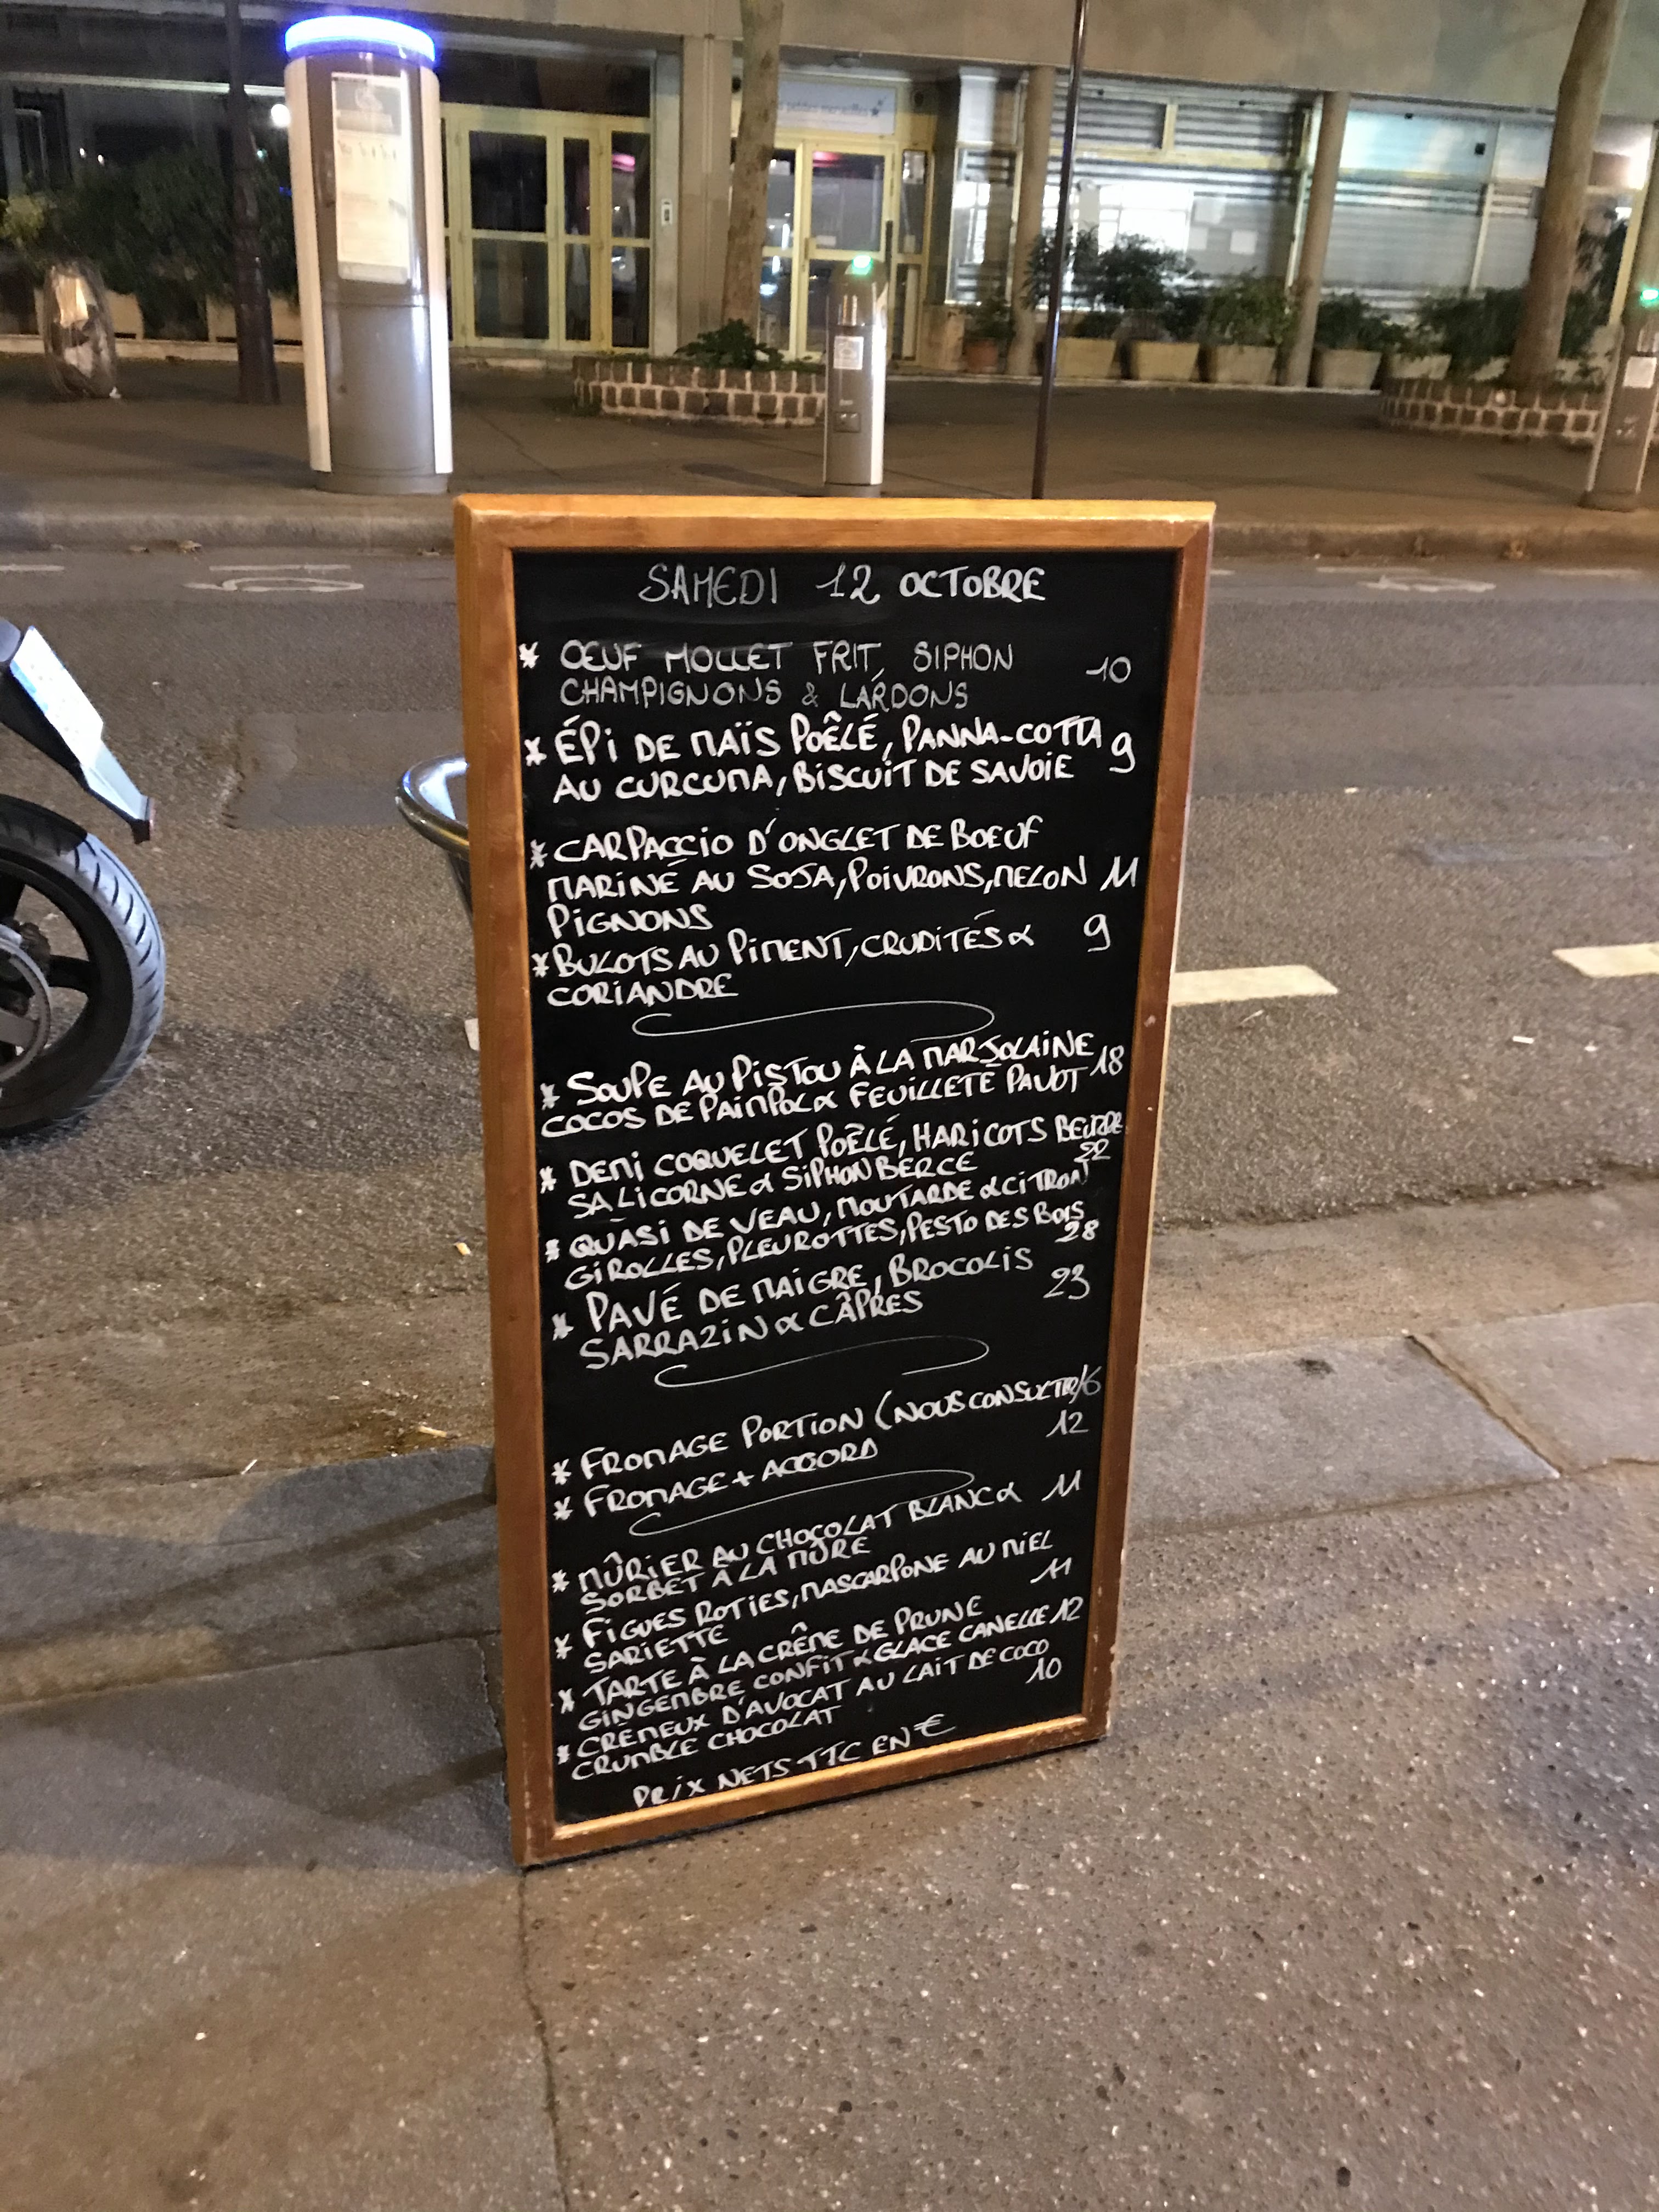 petites merveilles
SAMEDI 12 OCTOBRE
* ŒUF MOLLET FRIT, SIPHON 10
CHAMPIGNONS & LARDONS
* ÉPI DE MAÏS POÊLÉ, PANNA-COTTA 9
AU CURCUMA, BISCUIT DE SAVOIE
* CARPACCIO D'ONGLET DE BOEUF
MARINÉ AU SOJA, POIVRONS, MELON 11
PIGNONS
* BULOTS AU PIMENT, CRUDITÉS & 9
CORIANDRE
* SOUPE AU PISTOU À LA MARJOLAINE 18
COCOS DE PAIMPOL & FEUILLETÉ PAVOT
* DEMI COQUELET POÊLÉ, HARICOTS BEURRE
SALICORNE & SIPHON BERCE 22
* QUASI DE VEAU, MOUTARDE & CITRON
GIROLLES, PLEUROTTES, PESTO DES BOIS 28
* PAVÉ DE MAIGRE, BROCOLIS 23
SARRAZIN & CÂPRES
* FROMAGE PORTION (NOUS CONSULTER) 6
* FROMAGE + ACCORD 12
* MÛRIER AU CHOCOLAT BLANC & 11
SORBET À LA MÛRE
* FIGUES ROTIES, MASCARPONE AU MIEL
SARIETTE 11
* TARTE À LA CRÊME DE PRUNE
GINGEMBRE CONFIT & GLACE CANELLE 12
* CRÉMEUX D'AVOCAT AU LAIT DE COCO
CRUMBLE CHOCOLAT 10
PRIX NETS TTC EN €